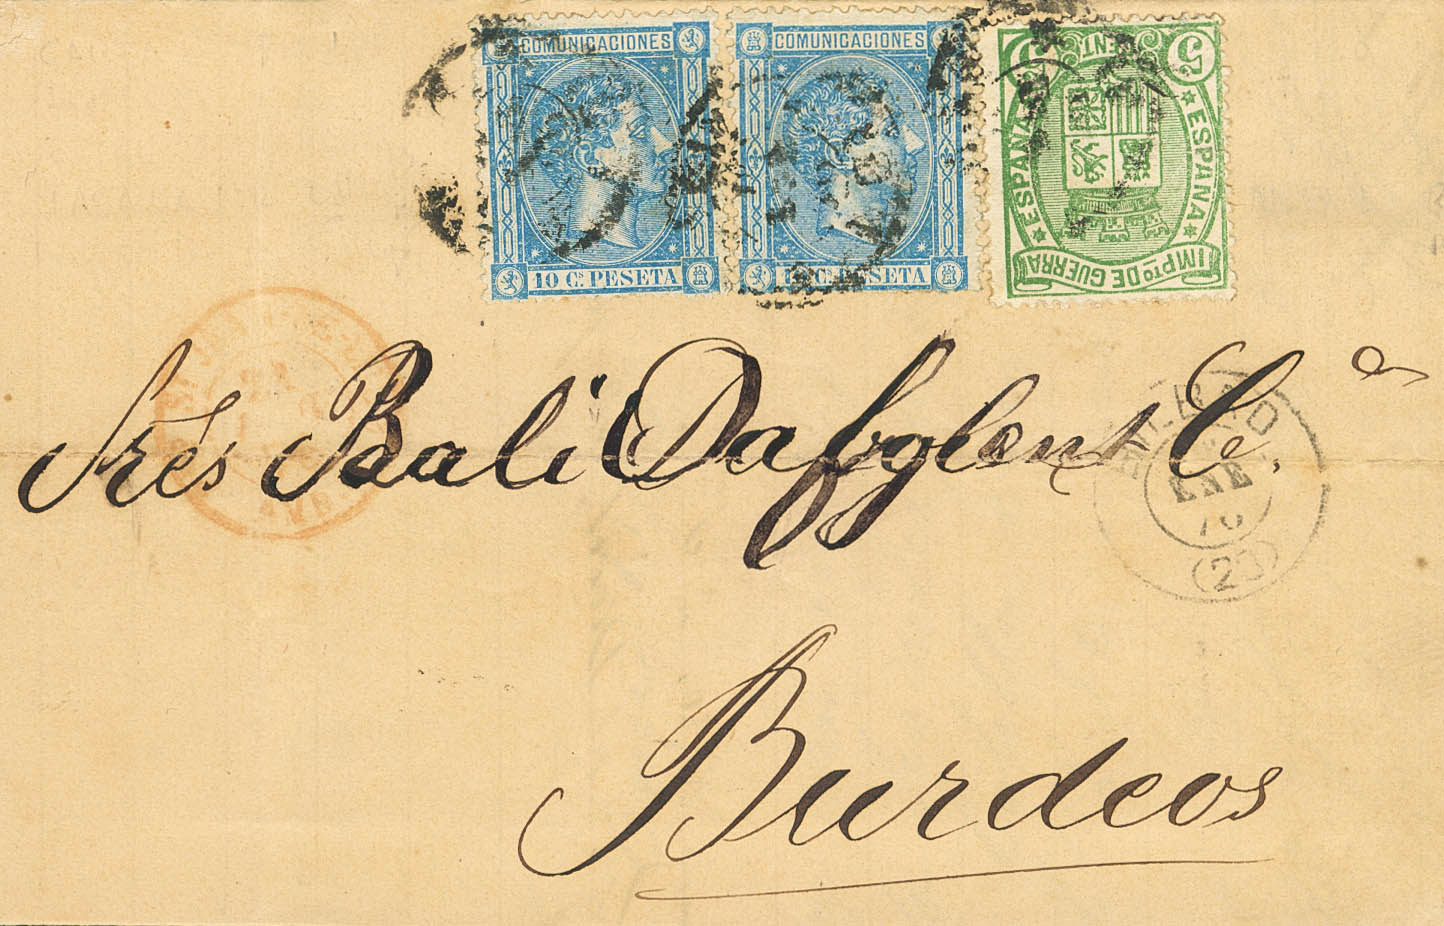 COMUNICACIONES
10 Cs. PESETA
COMUNICACIONES
Cs. PESETA
5 CENT 5
ESPAÑA ESPAÑA
IMPto DE GUERRA
Srès Bali Dafglent Cía
BILBAO
ENE
76
(23)
Burdeos